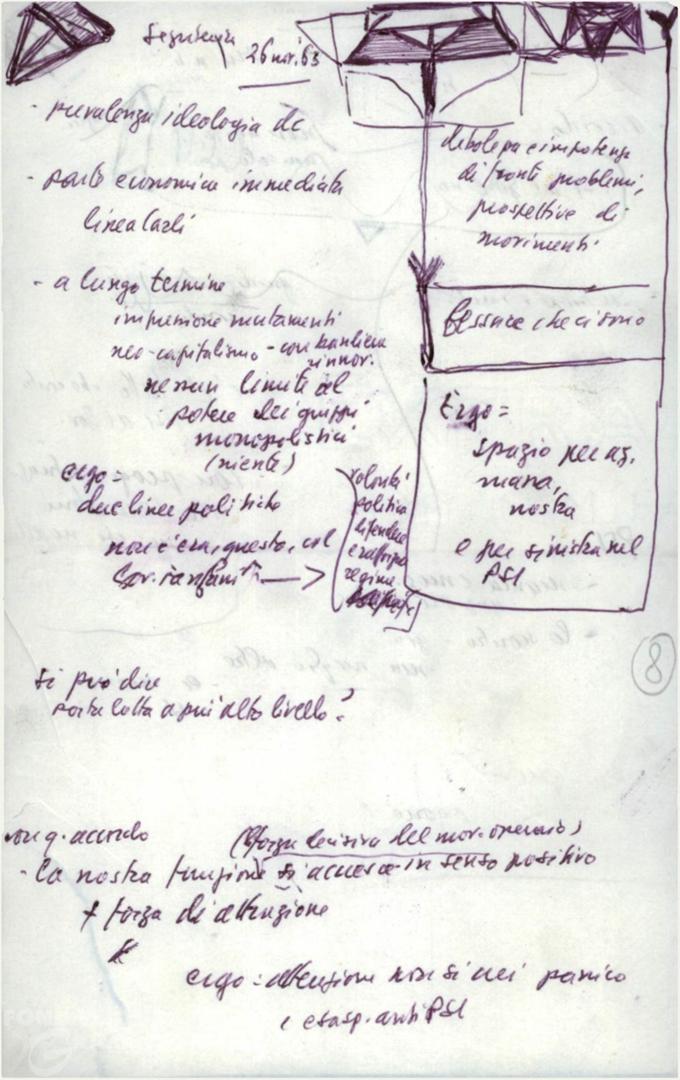 Segreteria 26 nov. 63
- prevalenza ideologia dc
- parte economica immediata
linea Carli
- a lungo termine
impressione mutamenti
neo-capitalismo - con bandiera
rinnov.
nessun limite al
potere dei gruppi
monopolistici
(niente)
ergo =
due linee politiche
non c'era, questo, col
Gov. Fanfani
→
volontà
politica
difendere
regime
debolezza e impotenza
di fronti problemi,
prospettive di
movimenti
Essenze che ci sono
Ergo =
spazio per az.
nostra
e per sinistra nel
PSI
8
si può dire
porta lotta a più alto livello?
con q. accordo
(forza decisiva del mov. operaio)
- La nostra funzione si accresce in senso positivo
+ forza di attenzione
ergo = attenzione non si nei panico
e esasp. anti PSI